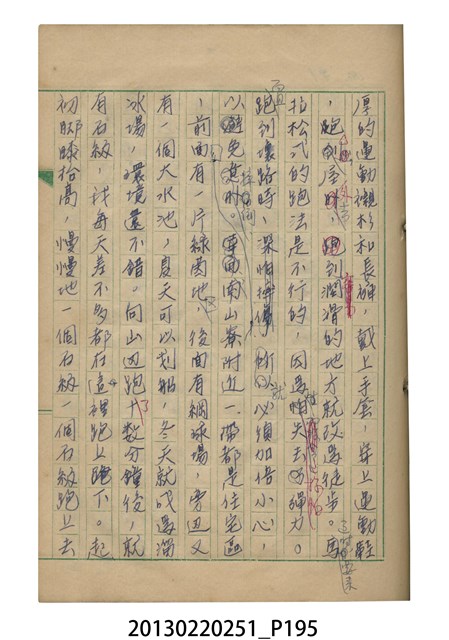 厚的運動襯衫和長褲，戴上手套，穿上運動鞋
，跑到 潤滑的地方就改為徒步。馬
拉松式的跑法是不行的，因為怕失去彈力。
跑到壞路時，深怕 所以必須加倍小心，
以避免 南山寮附近一帶都是住宅區
，前面有一片綠園地，後面有網球場，旁边又
有一個大水池，夏天可以划船，冬天就成為溜
冰場，環境還不錯。向山边跑十數分鐘後，就
有石級，我每天差不多都在這裡跑上跑下。起
初腳膝抬高，慢慢地一個石級一個石級跑上去
20130220251_P195